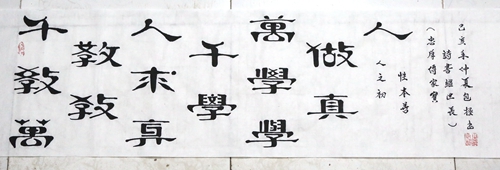 千教萬
教教
人求真
千學
萬學學
做真
人
人之初
性本善
（忠厚傳家寶
詩書繼世長）
己亥年